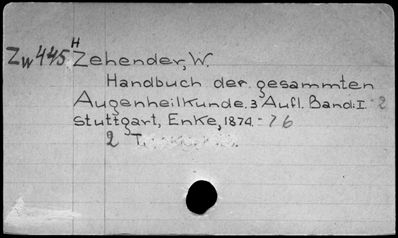 Zw 445 H Zehender, W.
Handbuch der gesammten
Augenheilkunde. 3 Aufl. Band: I-2
Stuttgart, Enke, 1874-76
2 T